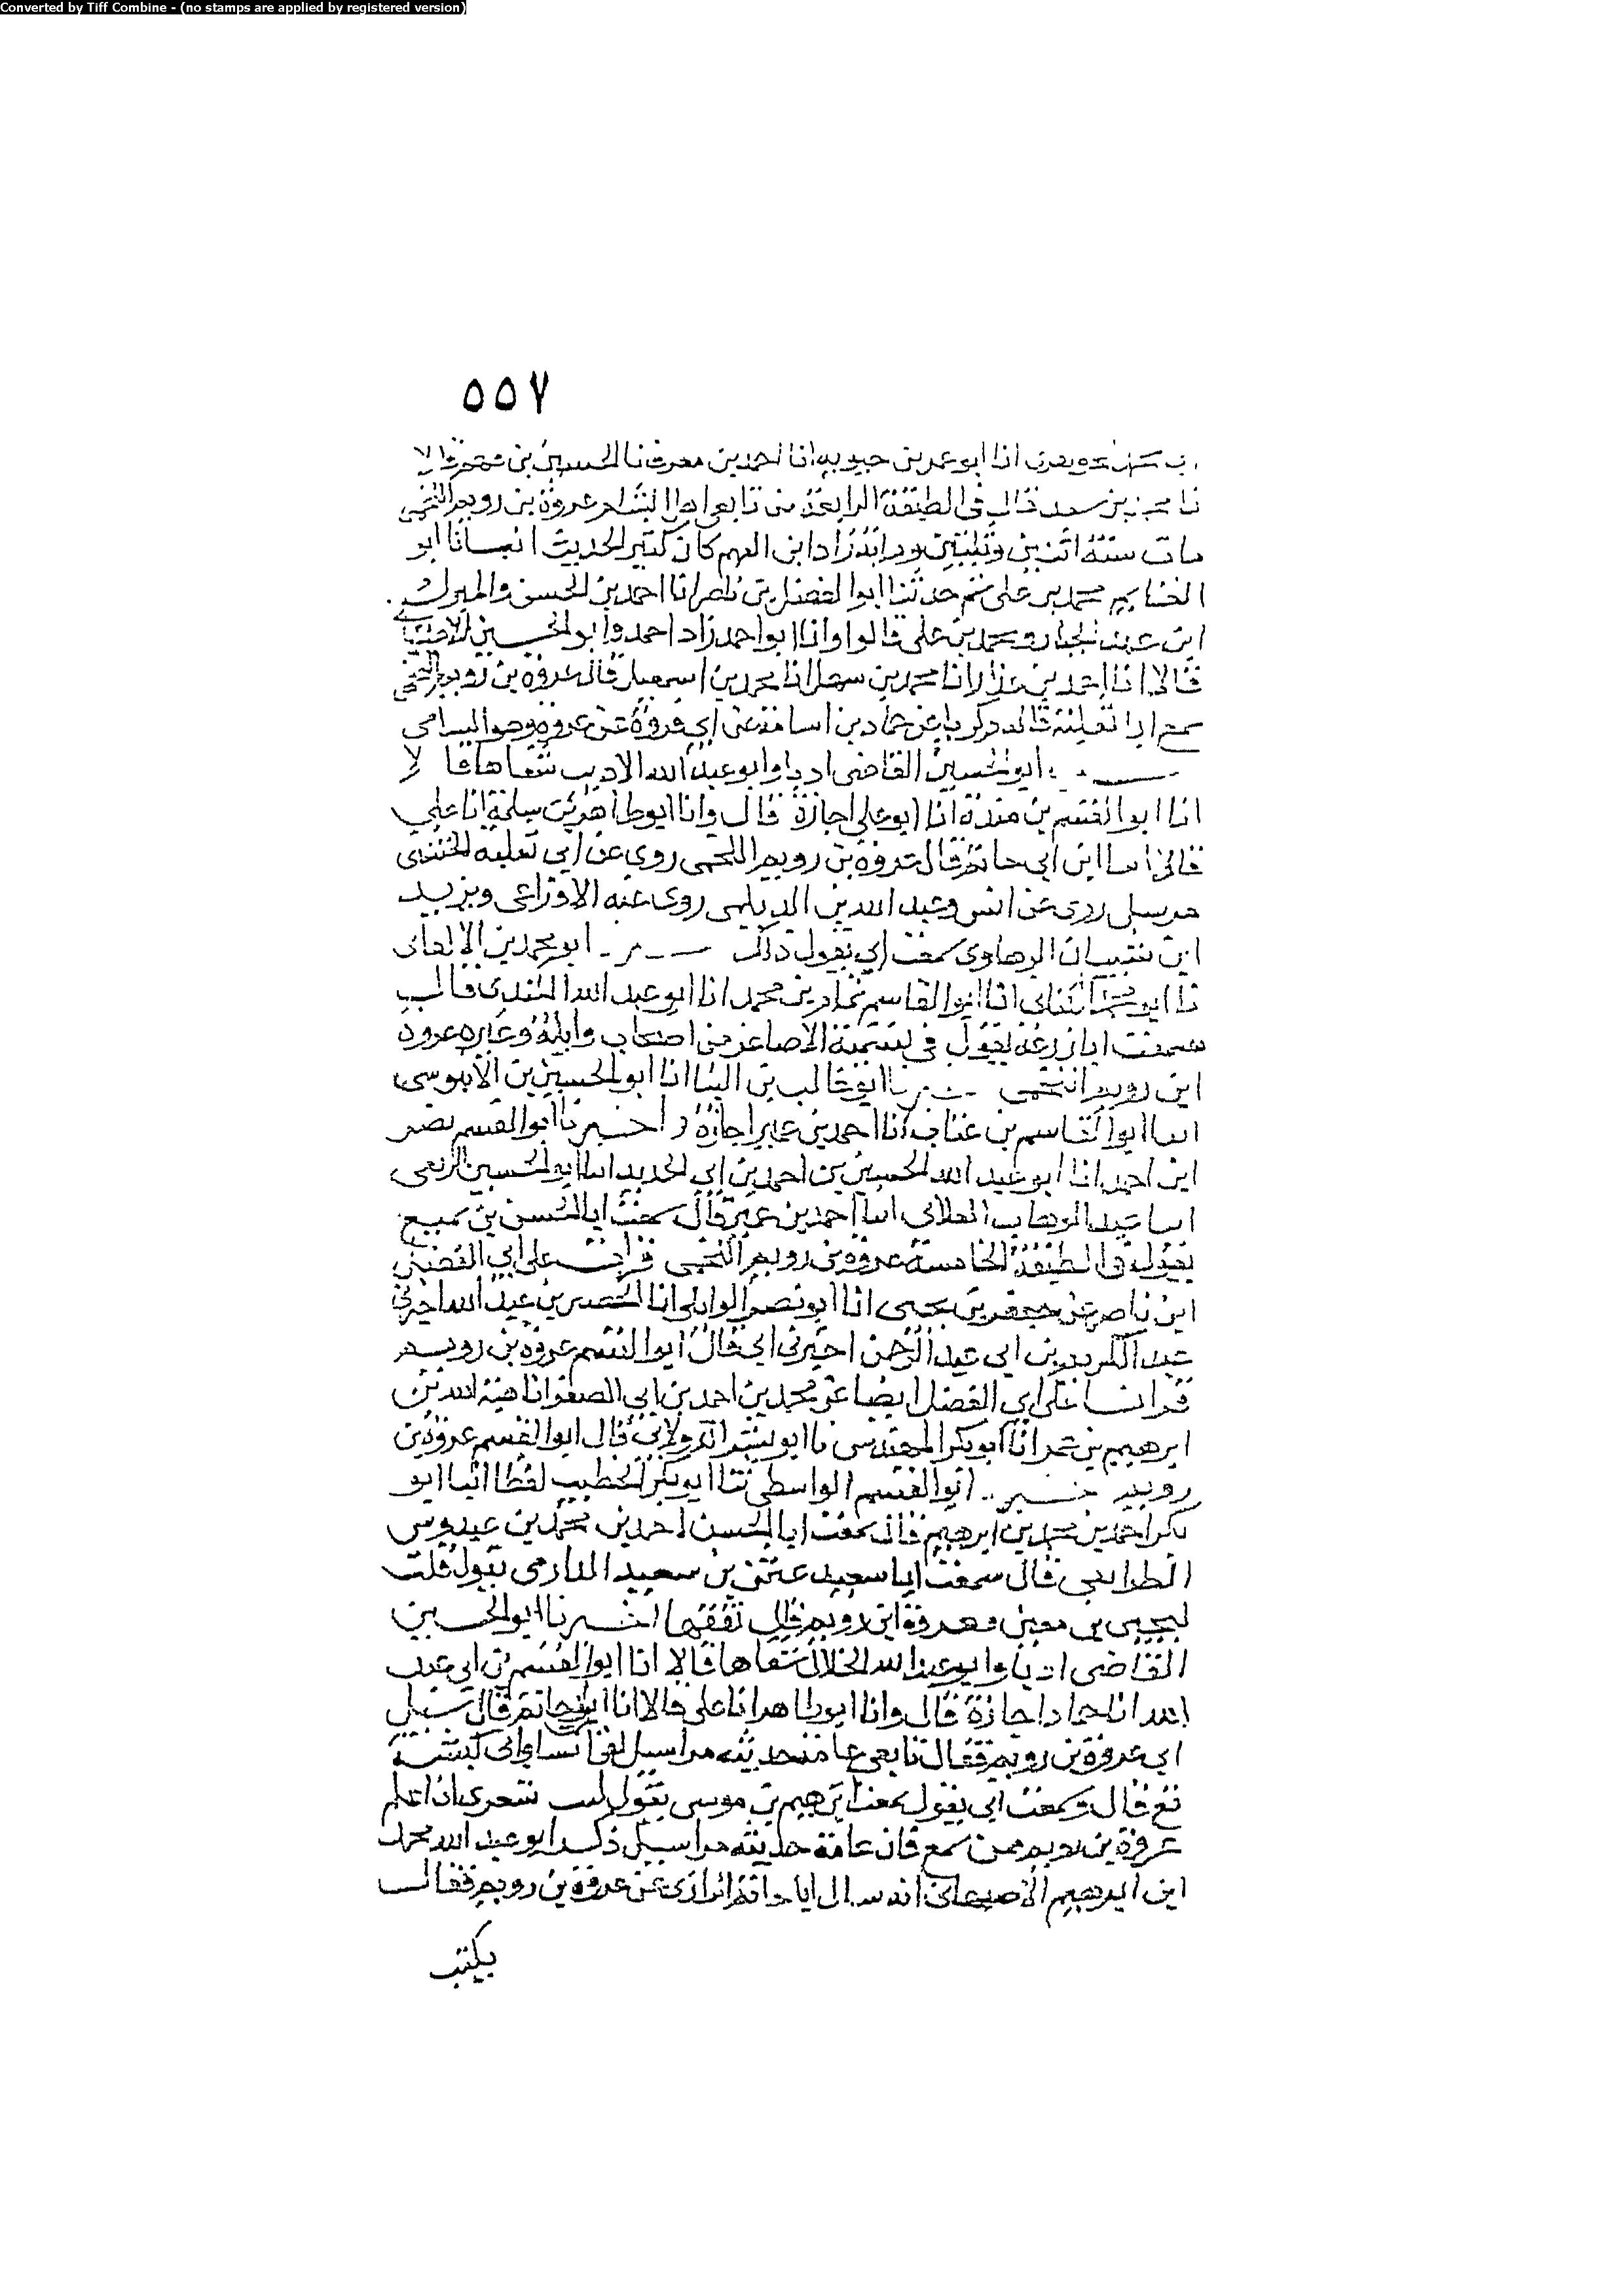 Converted by Tiff Combine - (no stamps are applied by registered version)
٥٥٧
انا ابو عمر بن حيويه انا احمد بن معروف نا الحسين بن
نا محمد بن سعد قال في الطبقة الرابعة من تابعي اهل الشام عروة بن رويم اللخمي
مات سنة اثنتين وثلثين ومائة زاد ابن الفهم كان كثير الحديث انبانا ابو
الغنايم محمد بن علي ثم حدثنا ابو الفضل بن ناصر انا احمد بن الحسن والمبرك
ابن عبد الجبار ومحمد بن علي قالوا وانا ابو احمد زاد احمد وابو الحسين الاصبهاني
قالا انا احمد بن عبدان انا محمد بن سهل انا محمد بن اسمعيل قال عروة بن رويم اللخمي
سمع ابا ثعلبة قاله زكريا عن حماد بن اسامة عن ابي فروة عن عروة وهو الشامي
ابو الحسين القاضي اذنا وابو عبد الله الاديب شفاها قالا
انا ابو القسم بن مندة انا ابو علي اجازة قال وانا ابو طاهر بن سلمة انا علي
قالا انا ابن ابي حاتم قال عروة بن رويم اللخمي روى عن ابي ثعلبه الخشني
مرسل روى عن انس وعبد الله بن الديلمي روى عنه الاوزاعي ويزيد
ابن سنان الرهاوي سمعت ابي يقول ذلك ابو محمد بن الاكفاني
نا ابو محمد الكتاني انا ابو القاسم تمام بن محمد انا ابو عبد الله الكندي قال
سمعت ابا زرعة يقول في تسمية الاصاغر من اصحاب واثلة وغيره عروة
ابن رويم اللخمي ابو غالب بن البنا انا ابو الحسين بن الابنوسي
انا ابو القاسم بن عتاب انا احمد بن عمير اجازة واخبرنا ابو القسم نصر
ابن احمد انا ابو عبد الله الحسين بن احمد بن ابي الحديد انا ابو الحسين الربعي
انا عبد الوهاب الكلابي انا احمد بن عمير قال سمعت ابا الحسن بن سميع
يقول في الطبقة الخامسة عروة بن رويم اللخمي قرات على ابي الفضل
ابن ناصر عن جعفر بن يحيى انا ابو نصر الوايلي انا الخصيب بن عبد الله اخبرني
عبد الكريم بن ابي عبد الرحمن اخبرني ابي قال ابو القسم عروة بن رويم
قرانا على ابي الفضل ايضا عن محمد بن احمد بن ابي الصقر انا هبة الله بن
ابرهيم بن عمر انا ابو بكر المهندس نا ابو بشر الدولابي قال ابو القسم عروة بن
رويم اخبرنا ابو القسم الواسطي نا ابو بكر الخطيب لفظا انبا ابو
بكر احمد بن محمد بن ابرهيم قال سمعت ابا الحسن احمد بن محمد بن عبدوس
الطرايفي قال سمعت ابا سعيد عثمن بن سعيد الدارمي يقول قلت
ليحيى بن معين فعروة ابن رويم قال ثقة اخبرنا ابو الحسين
القاضي اذنا وابو عبد الله الخلال شفاها قالا انا ابو القسم بن ابي عبد
الله انا حماد اجازة قال وانا ابو طاهر انا علي قالا انا ابن ابي حاتم قال سئل
ابي عروة بن رويم فقال تابعي عامة حديثه مراسيل لقي انسا وابا كبشة
قال وسمعت ابي يقول سمعت ابرهيم بن موسى يقول ليت شعري ان اعلم
عروة بن رويم ممن سمع فان عامة حديثه مراسيل ذكر ابو عبد الله محمد
ابن ابرهيم الاصبهاني انه سال ابا حاتم الرازي عن عروة بن رويم فقال
يكتب